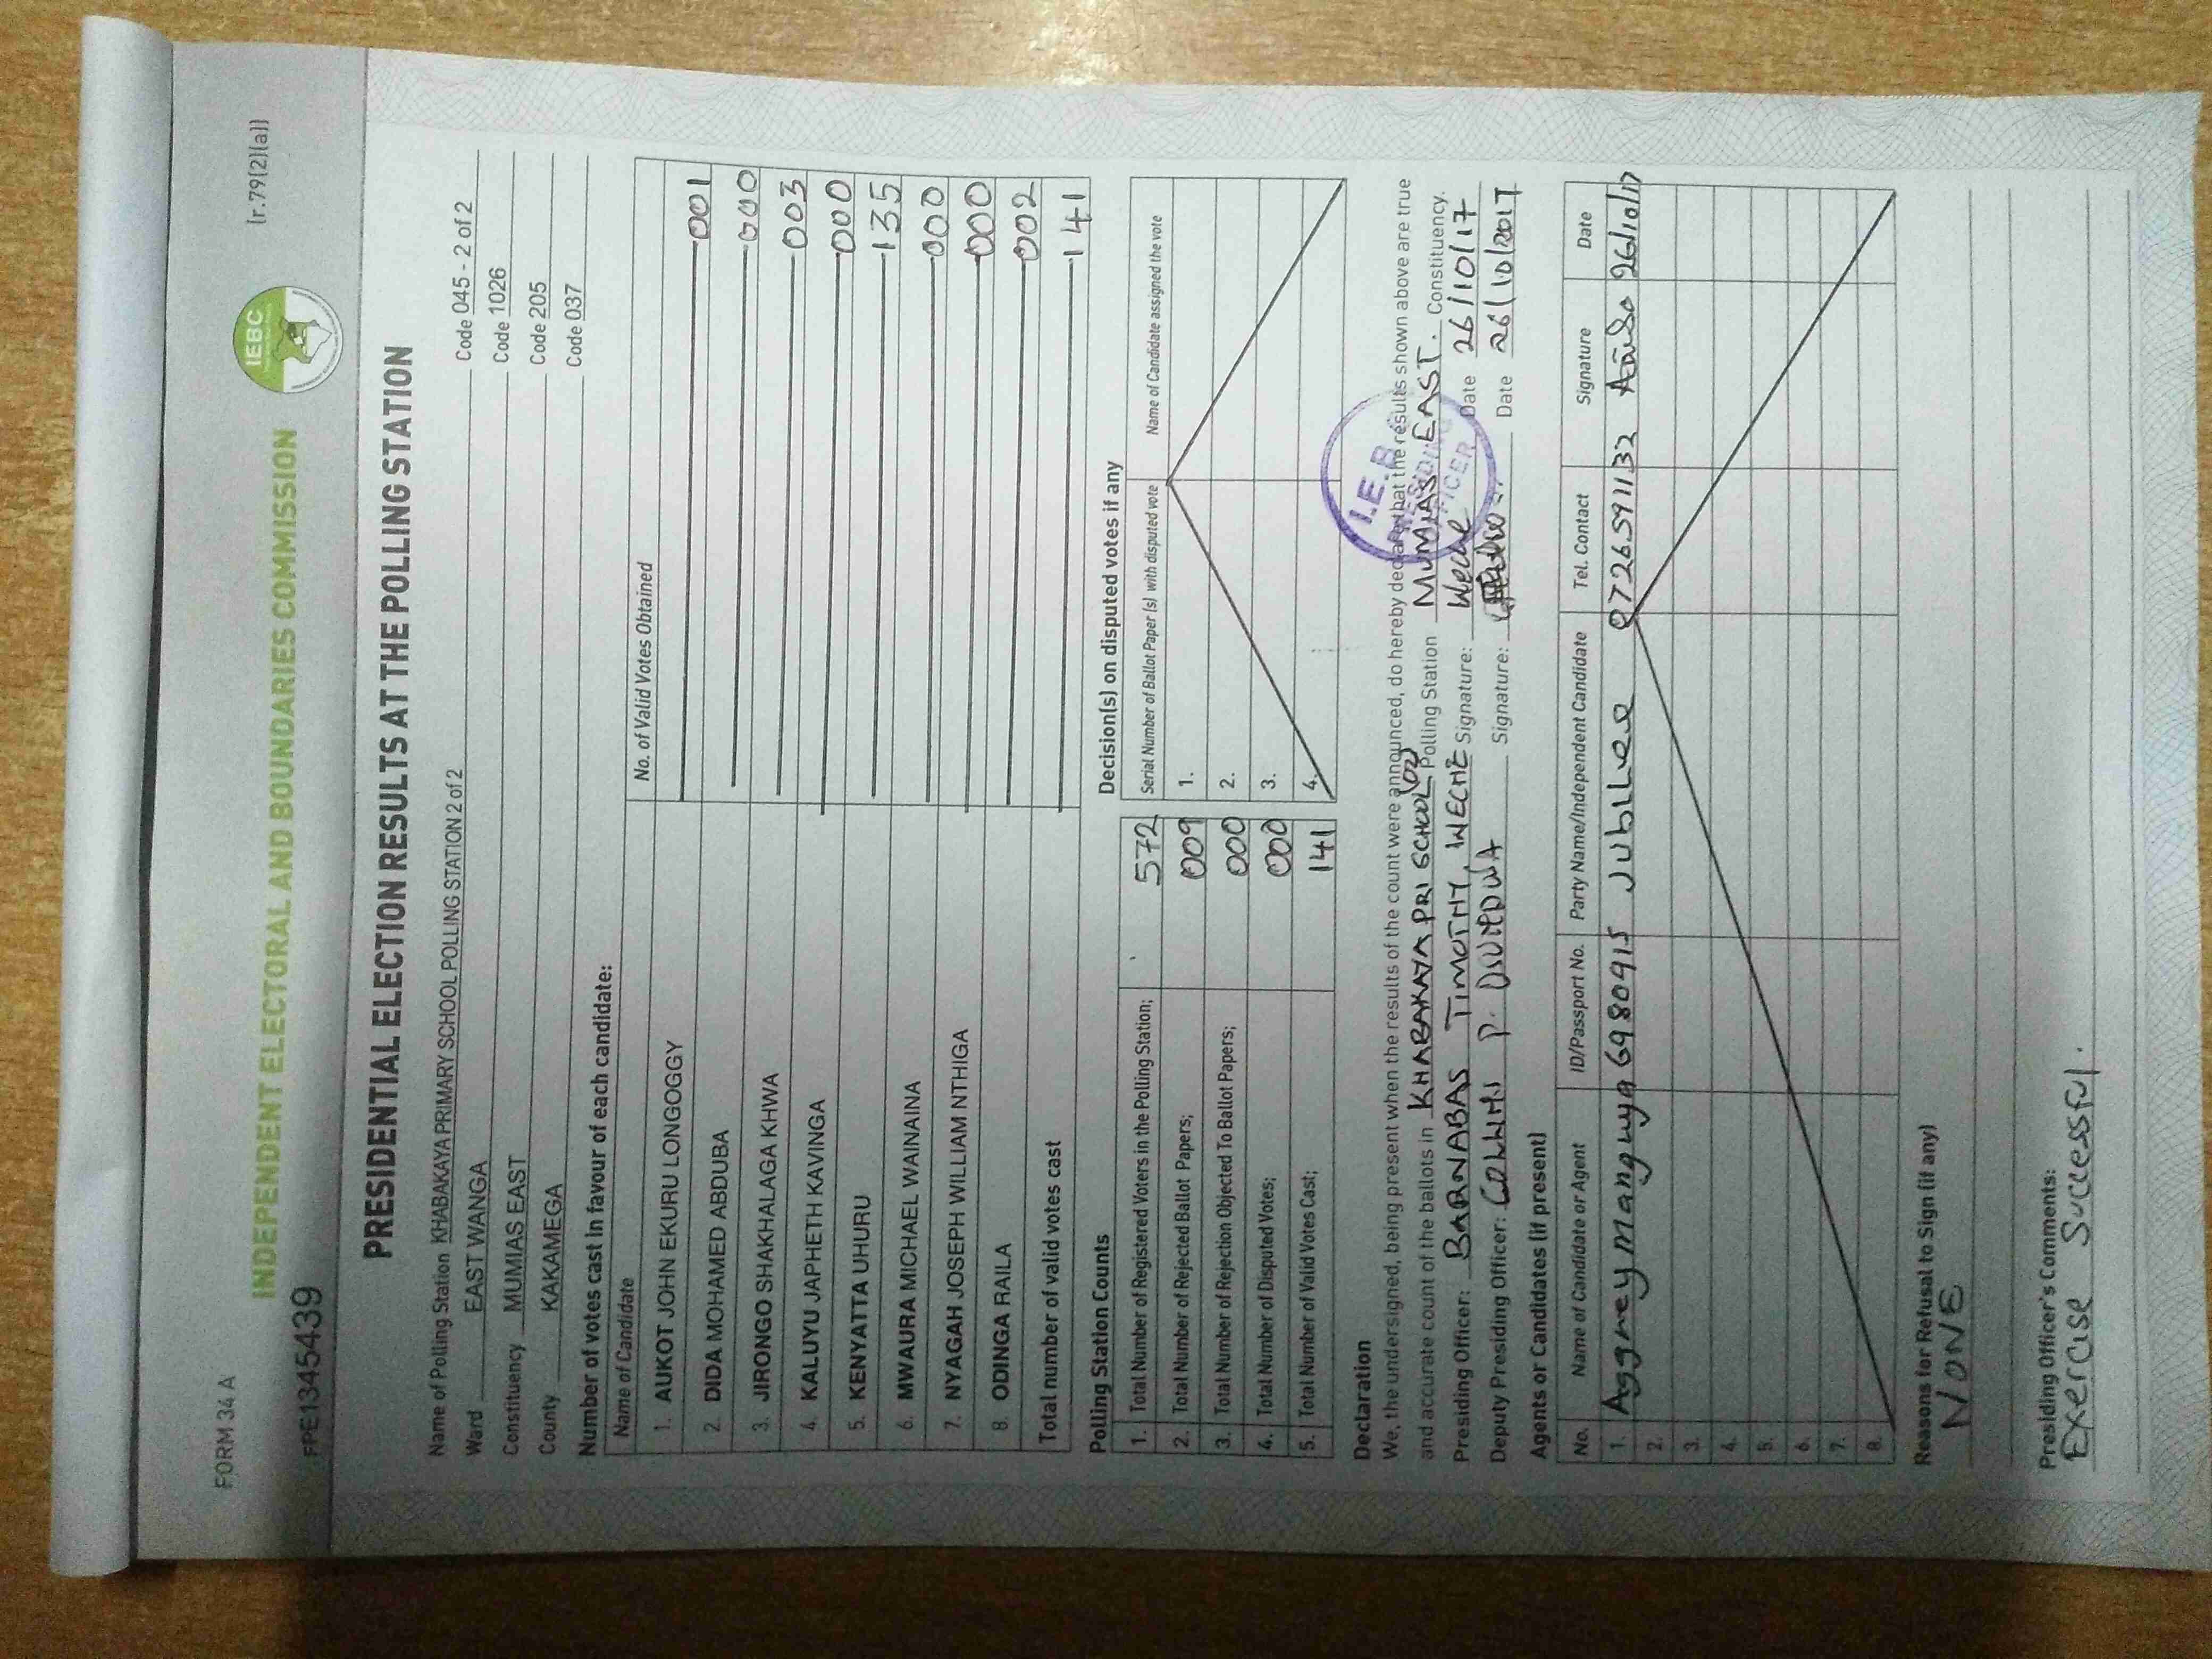 FORM 34 A
(r.79(2)(a))
IEBC
INDEPENDENT ELECTORAL AND BOUNDARIES COMMISSION
FPE1345439
PRESIDENTIAL ELECTION RESULTS AT THE POLLING STATION
Name of Polling Station KHABAKAYA PRIMARY SCHOOL POLLING STATION 2 of 2 Code 045 - 2 of 2
Ward EAST WANGA Code 1026
Constituency MUMIAS EAST Code 205
County KAKAMEGA Code 037
Number of votes cast in favour of each candidate:
Name of Candidate No. of Valid Votes Obtained
1. AUKOT JOHN EKURU LONGOGGY 001
2. DIDA MOHAMED ABDUBA 000
3. JIRONGO SHAKHALAGA KHWA 003
4. KALUYU JAPHETH KAVINGA 000
5. KENYATTA UHURU 135
6. MWAURA MICHAEL WAINAINA 000
7. NYAGAH JOSEPH WILLIAM NTHIGA 000
8. ODINGA RAILA 002
Total number of valid votes cast 141
Polling Station Counts
1. Total Number of Registered Voters in the Polling Station; 572
2. Total Number of Rejected Ballot Papers; 009
3. Total Number of Rejection Objected To Ballot Papers; 000
4. Total Number of Disputed Votes; 000
5. Total Number of Valid Votes Cast; 141
Decision(s) on disputed votes if any
Serial Number of Ballot Paper (s) with disputed vote Name of Candidate assigned the vote
1.
2.
3.
4.
Declaration
We, the undersigned, being present when the results of the count were announced, do hereby declare that the results shown above are true
and accurate count of the ballots in KHABAKAYA PRI SCHOOL (02) Polling Station MUMIAS EAST. Constituency.
Presiding Officer: BARNABAS TIMOTHY WECHE Signature: Weche Date 26/10/17
Deputy Presiding Officer: Signature: Date 26/10/2017
I.E.B
PRESIDING
OFFICER
Agents or Candidates (if present)
No. Name of Candidate or Agent ID/Passport No. Party Name/Independent Candidate Tel. Contact Signature Date
1. Aggrey Mangwya 6980915 Jubilee 0726591132 26/10/17
2.
3.
4.
5.
6.
7.
8.
Reasons for Refusal to Sign (if any)
NONE
Presiding Officer's Comments:
Exercise Sucessful.